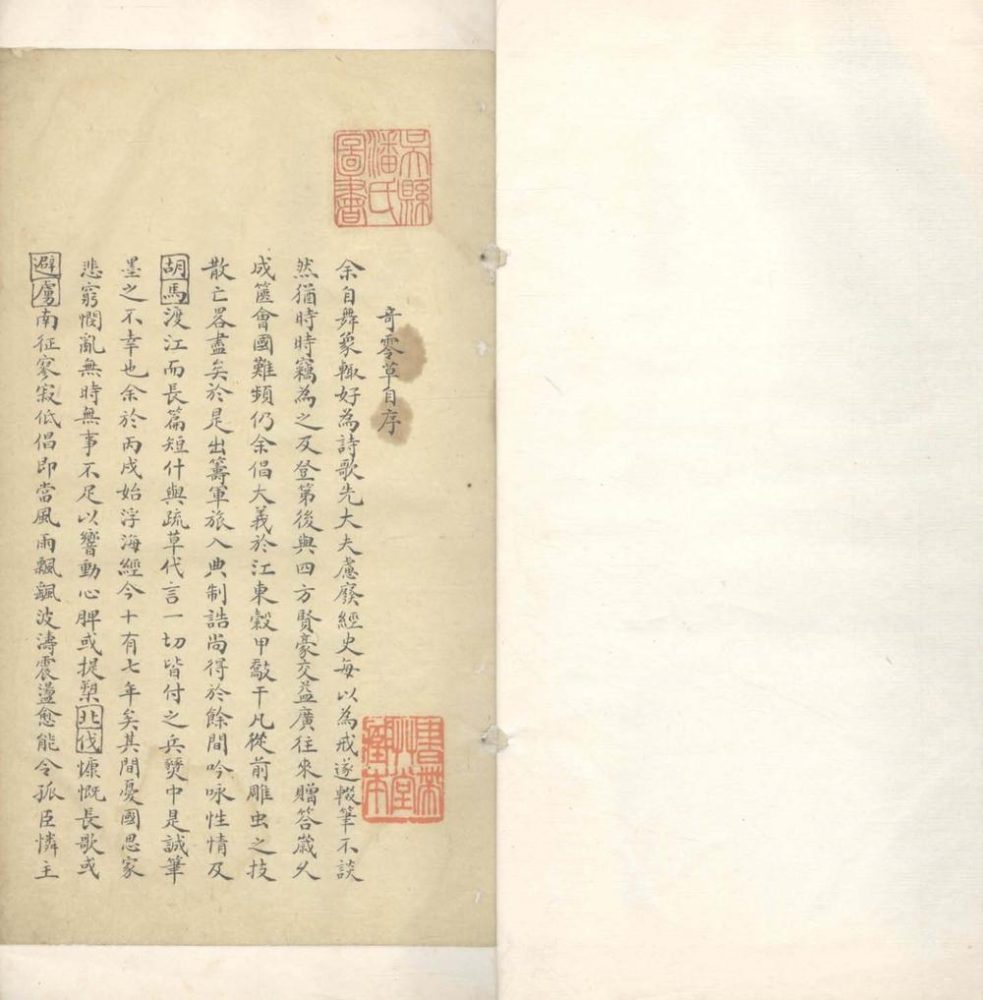 奇零草自序
余自舞象輙好為詩歌先大夫慮廢經史每以為戒遂輟筆不談
然猶時時竊為之及登第後與四方賢豪交益廣往來贈答歲久
成篋會國難頻仍余倡大義於江東敹甲敽干凡從前雕虫之技
散亡畧盡矣於是出籌軍旅入典制誥尚得於餘間吟咏性情及
胡馬渡江而長篇短什與疏草代言一切皆付之兵燹中是誠筆
墨之不幸也余於丙戌始浮海經今十有七年矣其間憂國思家
悲窮憫亂無時無事不足以響動心脾或提槊北伐慷慨長歌或
避虜南征寥寂低倡即當風雨飄颻波濤震盪愈能令孤臣憐主
吳縣
潘氏
圖書
書業
堂
藏本